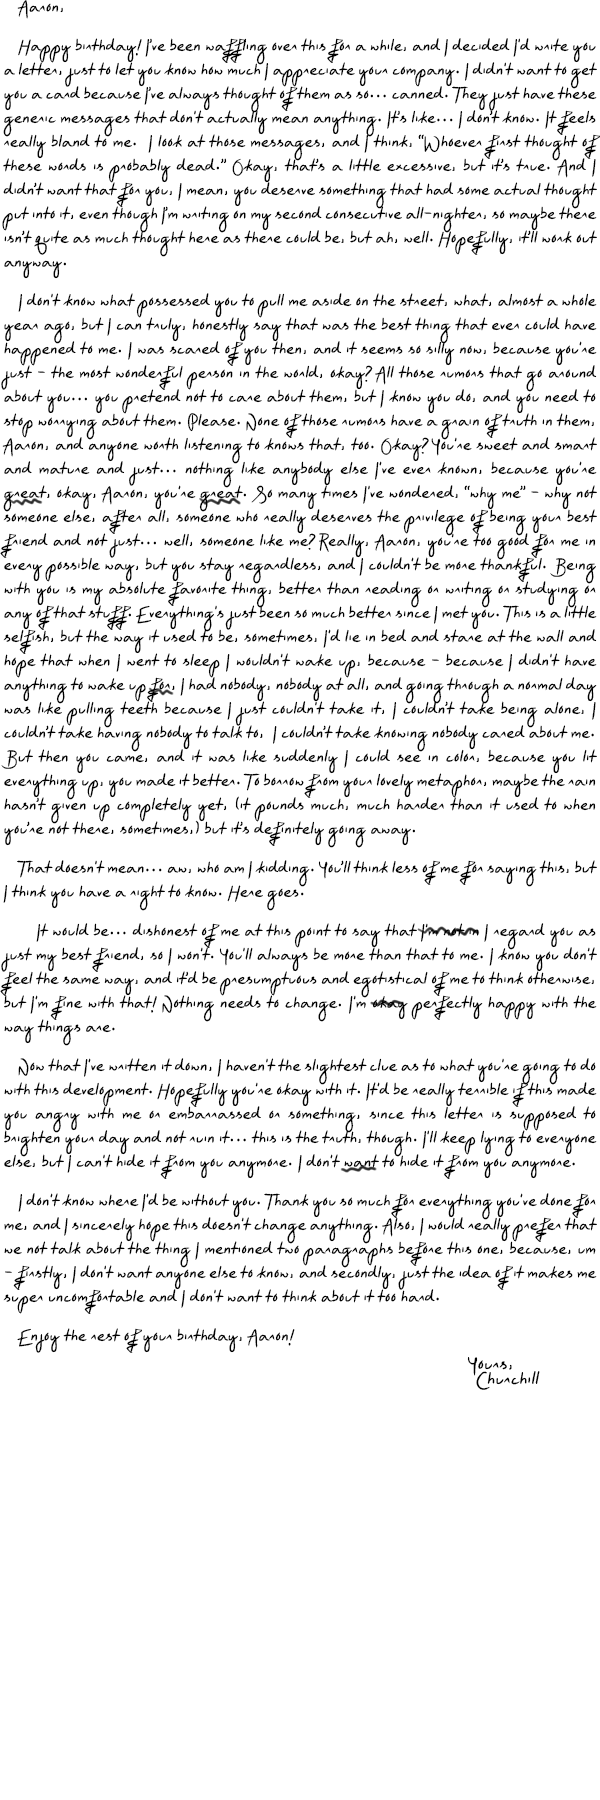 Aaron,
Happy birthday! I've been waffling over this for a while, and I decided I'd write you
a letter, just to let you know how much I appreciate your company. I didn't want to get
you a card because I've always thought of them as so... canned. They just have these
generic messages that don't actually mean anything. It's like... I don't know. It feels
really bland to me. I look at those messages, and I think, "Whoever first thought of
these words is probably dead." Okay, that's a little excessive, but it's true. And I
didn't want that for you, I mean, you deserve something that had some actual thought
put into it, even though I'm writing on my second consecutive all-nighter, so maybe there
isn't quite as much thought here as there could be, but ah, well. Hopefully, it'll work out
anyway.
I don't know what possessed you to pull me aside on the street, what, almost a whole
year ago, but I can truly, honestly say that was the best thing that ever could have
happened to me. I was scared of you then, and it seems so silly now, because you're
just - the most wonderful person in the world, okay? All those rumors that go around
about you... you pretend not to care about them, but I know you do, and you need to
stop worrying about them. Please. None of those rumors have a grain of truth in them,
Aaron, and anyone worth listening to knows that, too. Okay? You're sweet and smart
and mature and just... nothing like anybody else I've ever known, because you're
great, okay, Aaron, you're great. So many times I've wondered, "why me" - why not
someone else, after all, someone who really deserves the privilege of being your best
friend and not just... well, someone like me? Really, Aaron, you're too good for me in
every possible way, but you stay regardless, and I couldn't be more thankful. Being
with you is my absolute favorite thing, better than reading or writing or studying or
any of that stuff. Everything's just been so much better since I met you. This is a little
selfish, but the way it used to be, sometimes, I'd lie in bed and stare at the wall and
hope that when I went to sleep I wouldn't wake up, because - because I didn't have
anything to wake up for, I had nobody, nobody at all, and going through a normal day
was like pulling teeth because I just couldn't take it, I couldn't take being alone, I
couldn't take having nobody to talk to, I couldn't take knowing nobody cared about me.
But then you came, and it was like suddenly I could see in color, because you lit
everything up, you made it better. To borrow from your lovely metaphor, maybe the rain
hasn't given up completely yet, (it pounds much, much harder than it used to when
you're not there, sometimes,) but it's definitely going away.
That doesn't mean... aw, who am I kidding. You'll think less of me for saying this, but
I think you have a right to know. Here goes.
It would be... dishonest of me at this point to say that I regard you as
just my best friend, so I won't. You'll always be more than that to me. I know you don't
feel the same way, and it'd be presumptuous and egotistical of me to think otherwise,
but I'm fine with that! Nothing needs to change. I'm okay perfectly happy with the
way things are.
Now that I've written it down, I haven't the slightest clue as to what you're going to do
with this development. Hopefully you're okay with it. It'd be really terrible if this made
you angry with me or embarrassed or something, since this letter is supposed to
brighten your day and not ruin it... this is the truth, though. I'll keep lying to everyone
else, but I can't hide it from you anymore. I don't want to hide it from you anymore.
I don't know where I'd be without you. Thank you so much for everything you've done for
me, and I sincerely hope this doesn't change anything. Also, I would really prefer that
we not talk about the thing I mentioned two paragraphs before this one, because, um
- firstly, I don't want anyone else to know, and secondly, just the idea of it makes me
super uncomfortable and I don't want to think about it too hard.
Enjoy the rest of your birthday, Aaron!
Yours,
Churchill